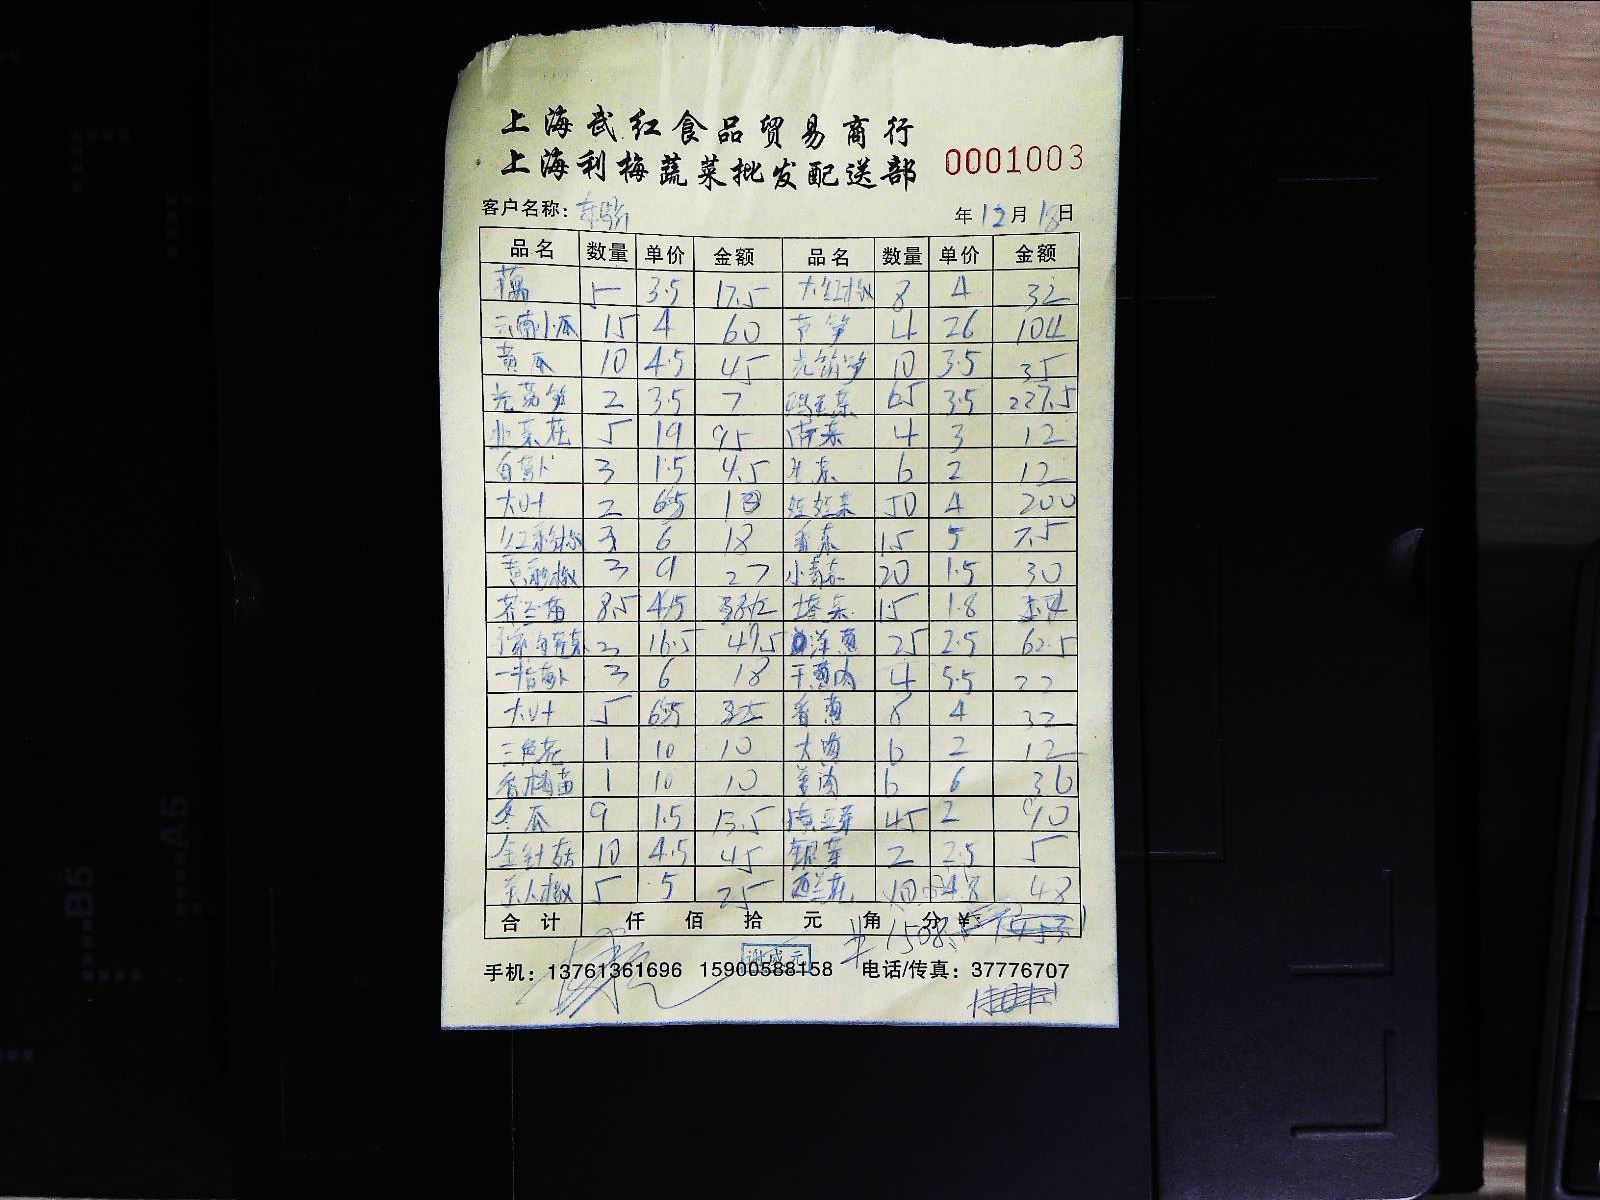 上海武红食品贸易商行
上海利梅蔬菜批发配送部 0001003
客户名称: 年12月18日
品名 数量 单价 金额 品名 数量 单价 金额
藕 5 3.5 17.5 大红椒 8 4 32
云南小瓜 15 4 60 芦笋 4 26 104
黄瓜 10 4.5 45 光莴笋 10 3.5 35
光莴笋 2 3.5 7 65 3.5 227.5
韭菜花 5 19 95 芹菜 4 3 12
白萝卜 3 1.5 4.5 生菜 6 2 12
大叶 2 6.5 13 娃娃菜 50 4 200
红彩椒 3 6 18 香菜 1.5 5 7.5
黄彩椒 3 9 27 小青菜 20 1.5 30
芥兰苗 8.5 4.5 塔菜 1.5 1.8
3 16.5 49.5 洋葱 25 2.5 62.5
一指萝卜 3 6 18 干葱肉 4 5.5 22
大叶 5 6.5 香葱 8 4 32
三色花 1 10 10 大蒜 6 2 12
香椿苗 1 10 10 姜肉 6 6 36
冬瓜 9 1.5 13.5 黄豆芽 45 2 90
金针菇 10 4.5 45 银芽 2 2.5 5
美人椒 5 5 25 西兰花 10 4.8 48
合计 仟 佰 拾 元 角 分 ¥:
手机: 13761361696 15900588158 电话/传真: 37776707